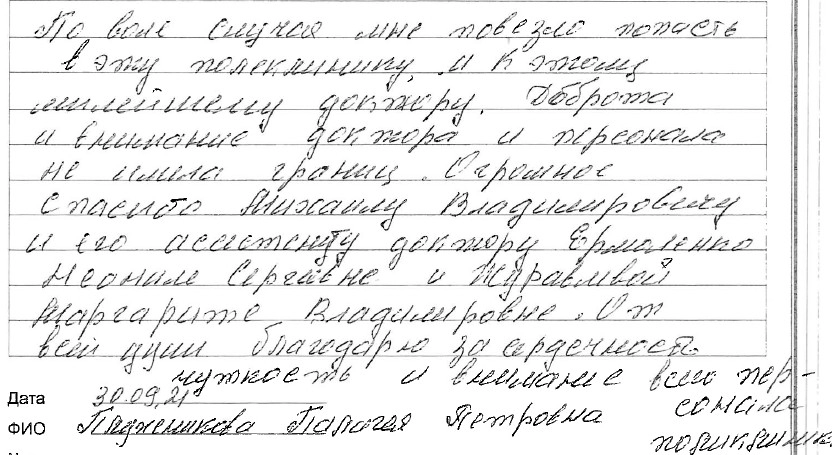 По воле случая мне повезло попасть
в эту полеклинику, и к этому
милейшему доктору. Доброта
и внимание доктора и персонала
не имела границ. Огромное
спасибо Михаилу Владимировичу
и его асистенту доктору Ермоленко
Неониле Сергеевне и Журавлвой
Маргарите Владимировне. От
всей души благодарю за сердечность
чуткость и внимание всего пер-
Дата 30.09.21 сонала
ФИО Пелагея Петровна